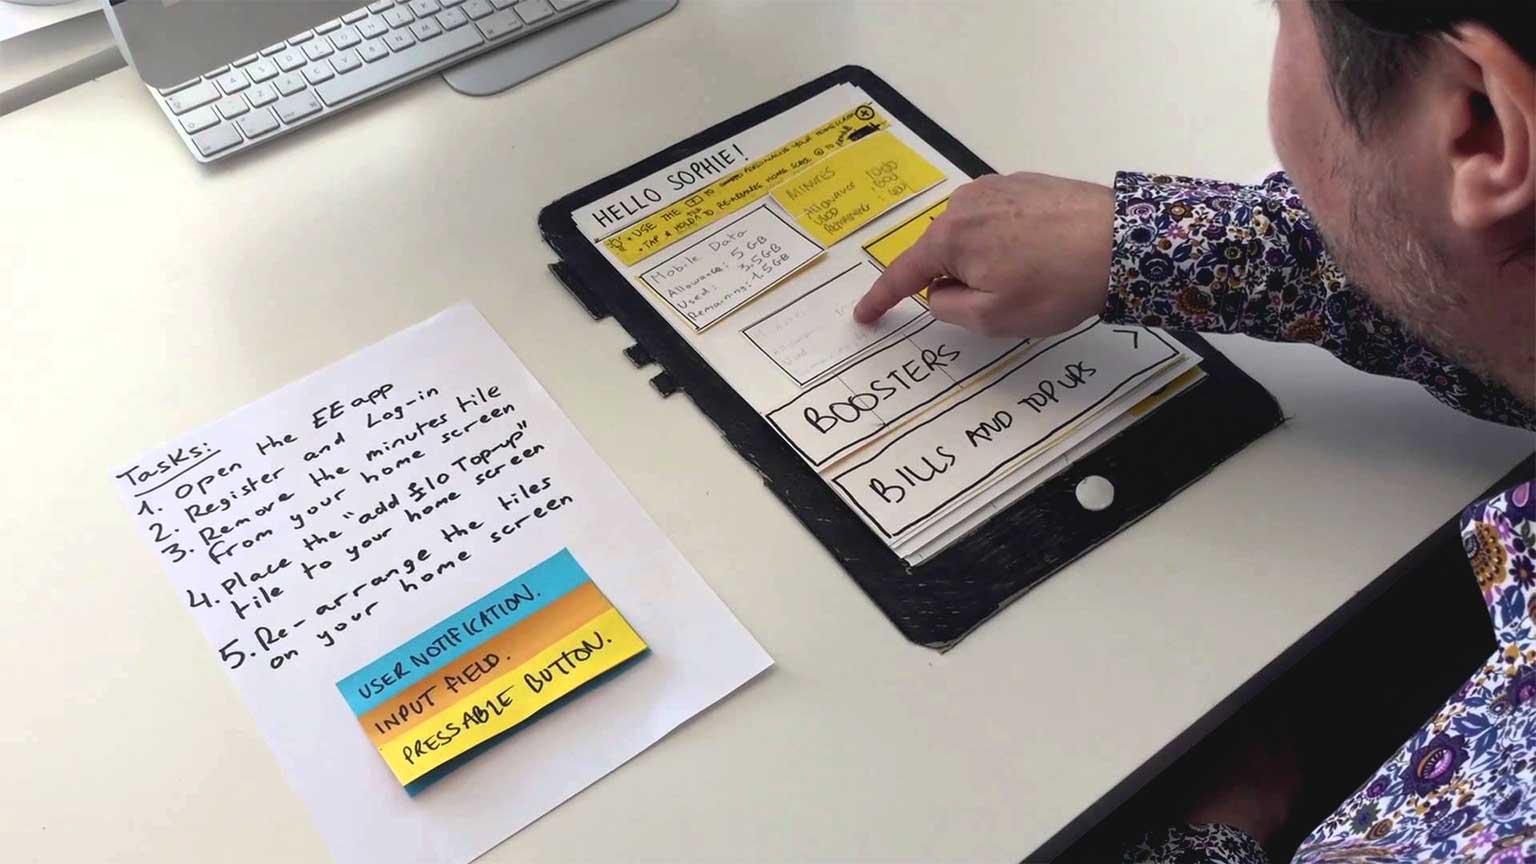 Tasks:
1. Open the EE app
2. Register and Log-in
3. Remove the minutes tile
from your home screen
4. Place the "add £10 Top-up"
tile to your home screen
5. Re-arrange the tiles
on your home screen
USER NOTIFICATION.
INPUT FIELD.
PRESSABLE BUTTON.
HELLO SOPHIE!
• USE THE TO PERSONALISE YOUR HOME SCREEN
• TAP & HOLD TO RE-ARRANGE HOME SCREEN
Mobile Data
Allowance: 5 GB
Used: 3.5GB
Remaining: 1.5GB
MINUTES
Allowance 1000
USED 600
REMAINING:
BOOSTERS
BILLS AND TOP UPS